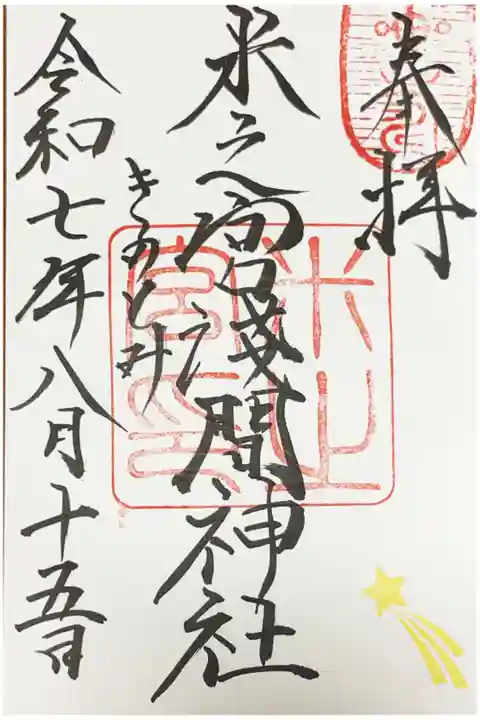 奉拝
米之宮浅間神社
令和七年八月十五日
米之宮印